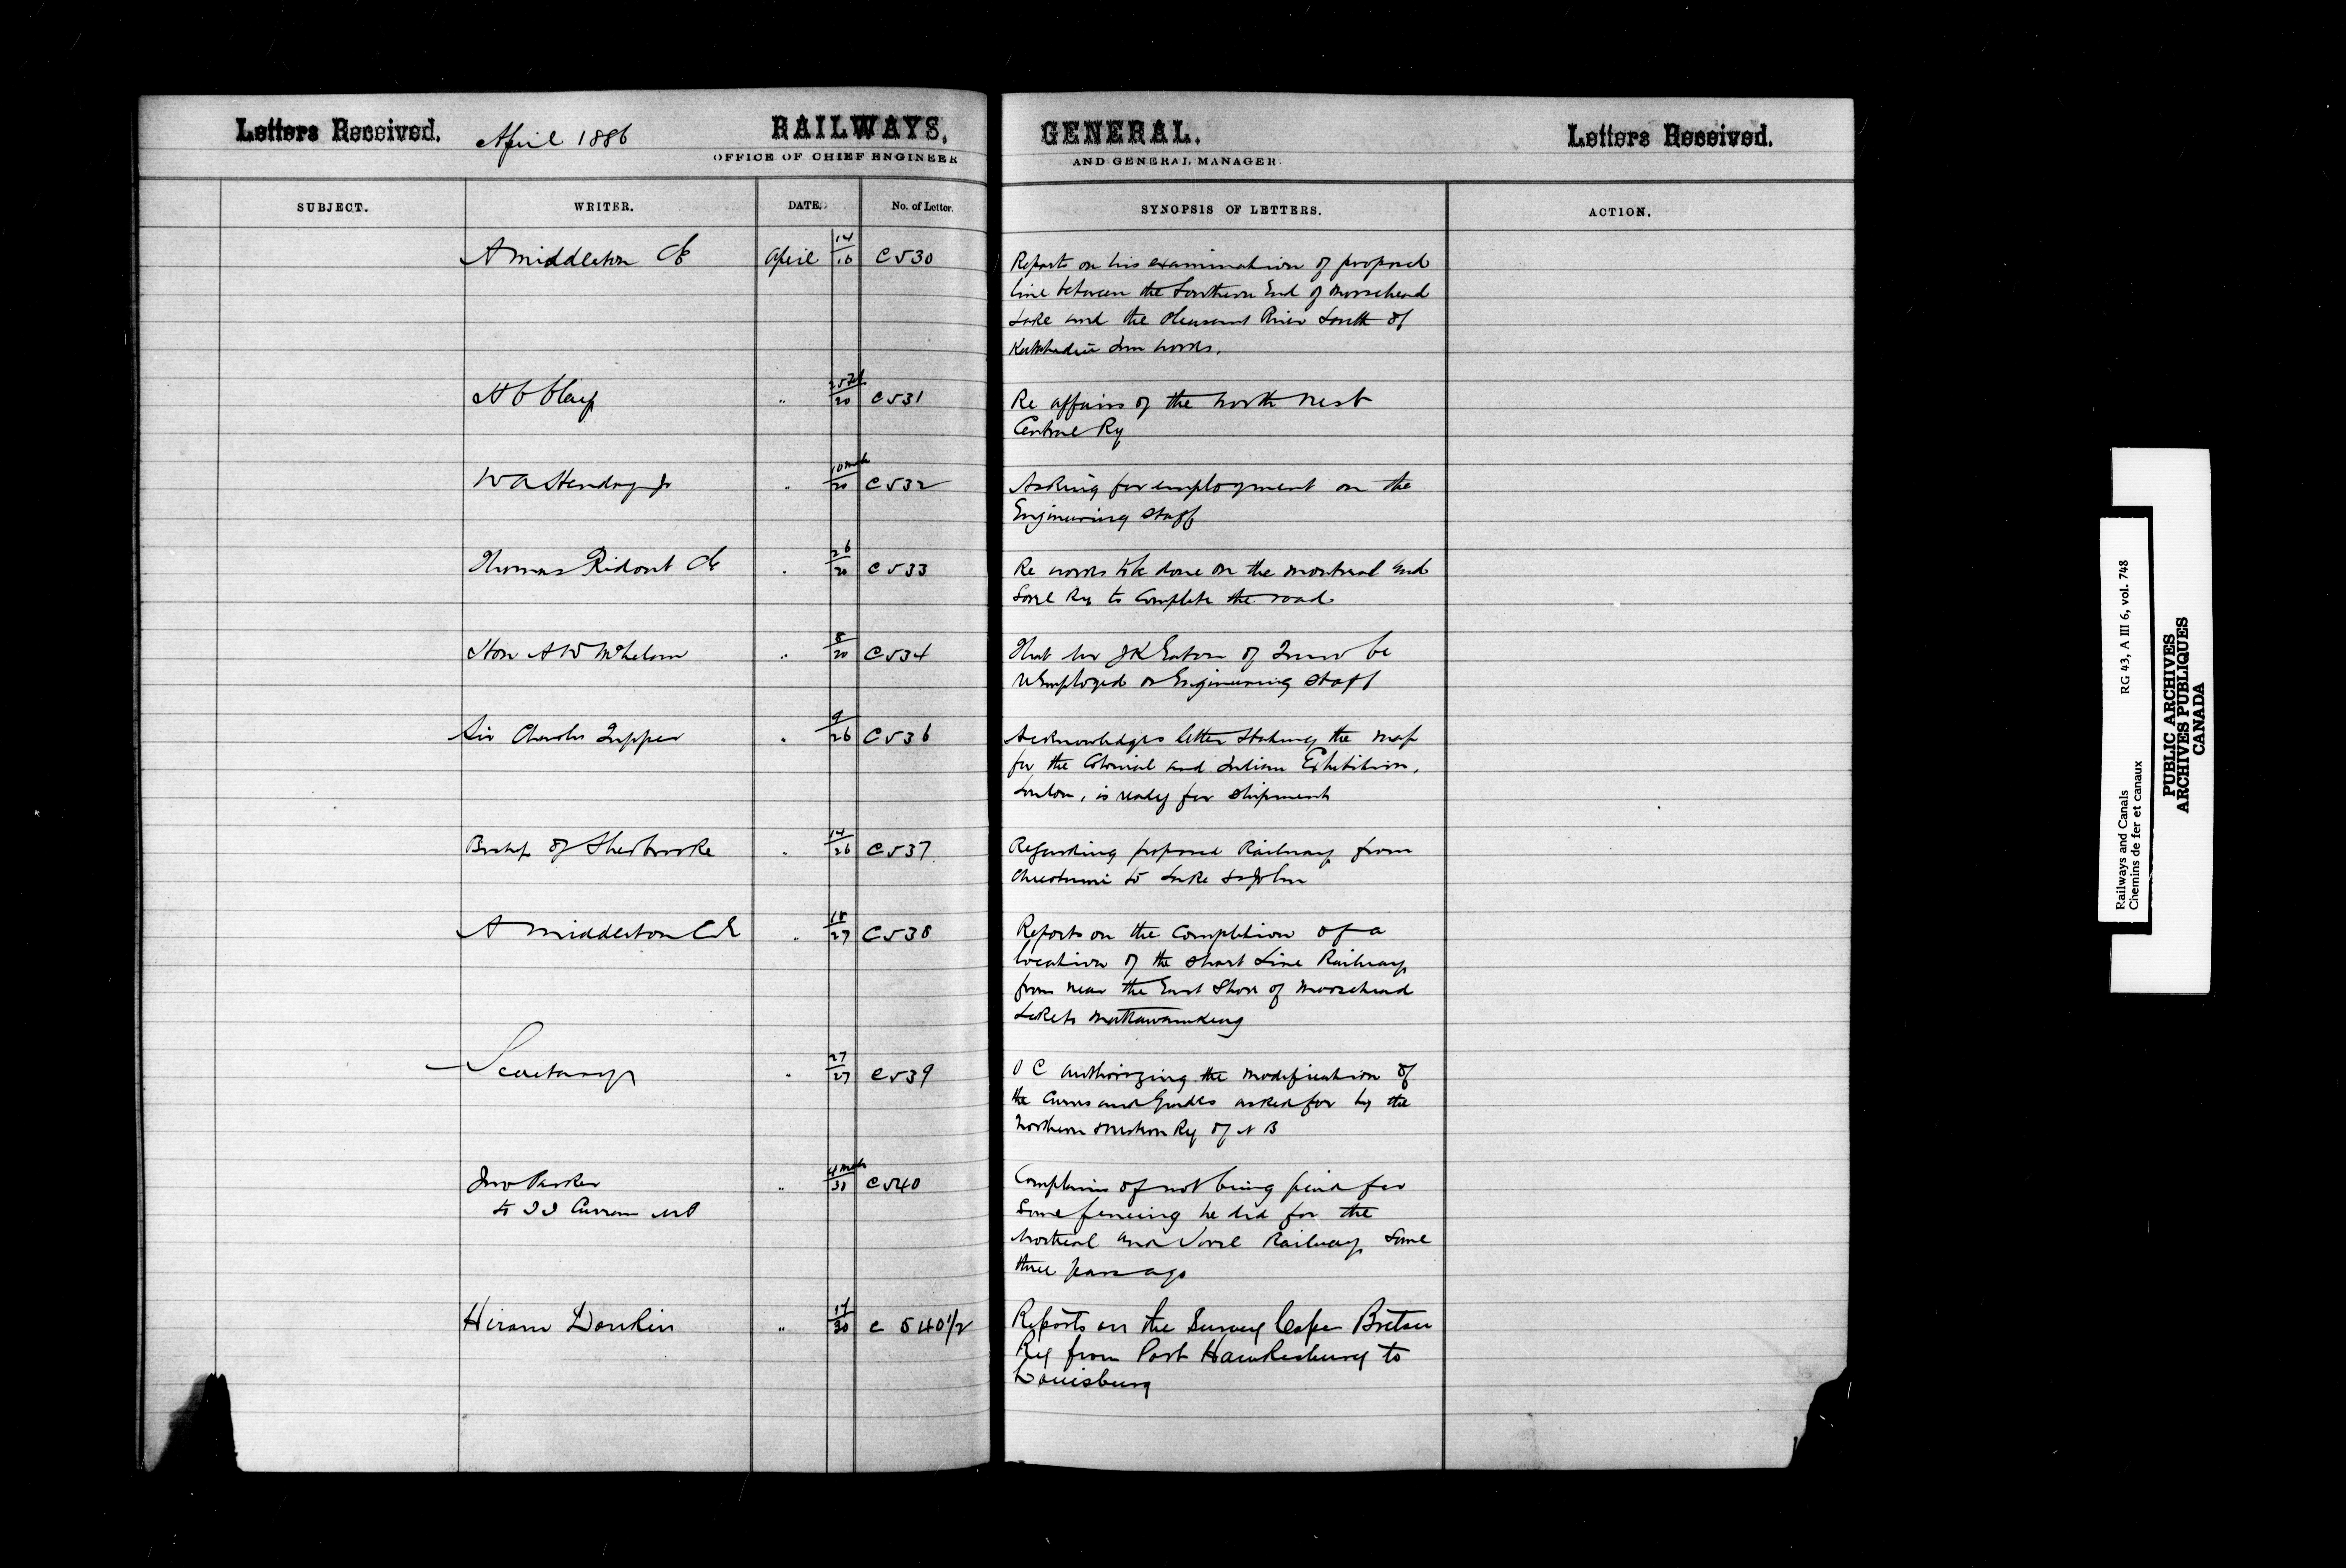 Letters Received. April 1886 RAILWAYS, GENERAL. Letters Received.
OFFICE OF CHIEF ENGINEER AND GENERAL MANAGER.
SUBJECT. WRITER. DATE. No. of Letter. SYNOPSIS OF LETTERS. ACTION.
A Middleton CE April 14/16 C530 Reports on his examination of proposed
line between the Southern End of Moosehead
Lake and the Pleasant River South of
Katahdin Iron works.
" 25 Feb/20 C531 Re affairs of the North West
Central Ry
W A Hendry Jr " 10 Mch/20 C532 Asking for employment on the
Engineering Staff
Thomas Ridout CE " 26/20 C533 Re works to be done on the Montreal and
Sorel Ry to complete the road
Hon A W McLelan " 8/20 C534 That Mr J K Eaton of Truro be
reemployed on Engineering Staff
Sir Charles Tupper " 9/26 C536 Acknowledges letter stating the map
for the Colonial and Indian Exhibition,
London, is ready for shipment
Bishop of Sherbrooke " 14/26 C537 Regarding proposed Railway from
to Lake St John
A Middleton CE " 18/27 C538 Reports on the completion of a
location of the Short Line Railway
from near the East Shore of Moosehead
Lake to Mattawamkeag
Secretary " 27/27 C539 O C authorizing the modification of
the Curves and Grades asked for by the
Northern & Western Ry of N B
Jno Parker " 4 Mch/30 C540 Complains of not being paid for
to J J Curran MP some fencing he did for the
Montreal and Sorel Railway some
three years ago
Hiram Donkin " 17/30 C 540 1/2 Reports on the Survey Cape Breton
Ry from Port Hawkesbury to
Louisburg
Railways and Canals RG 43, A III 6, vol. 748
Chemins de fer et canaux
PUBLIC ARCHIVES
ARCHIVES PUBLIQUES
CANADA